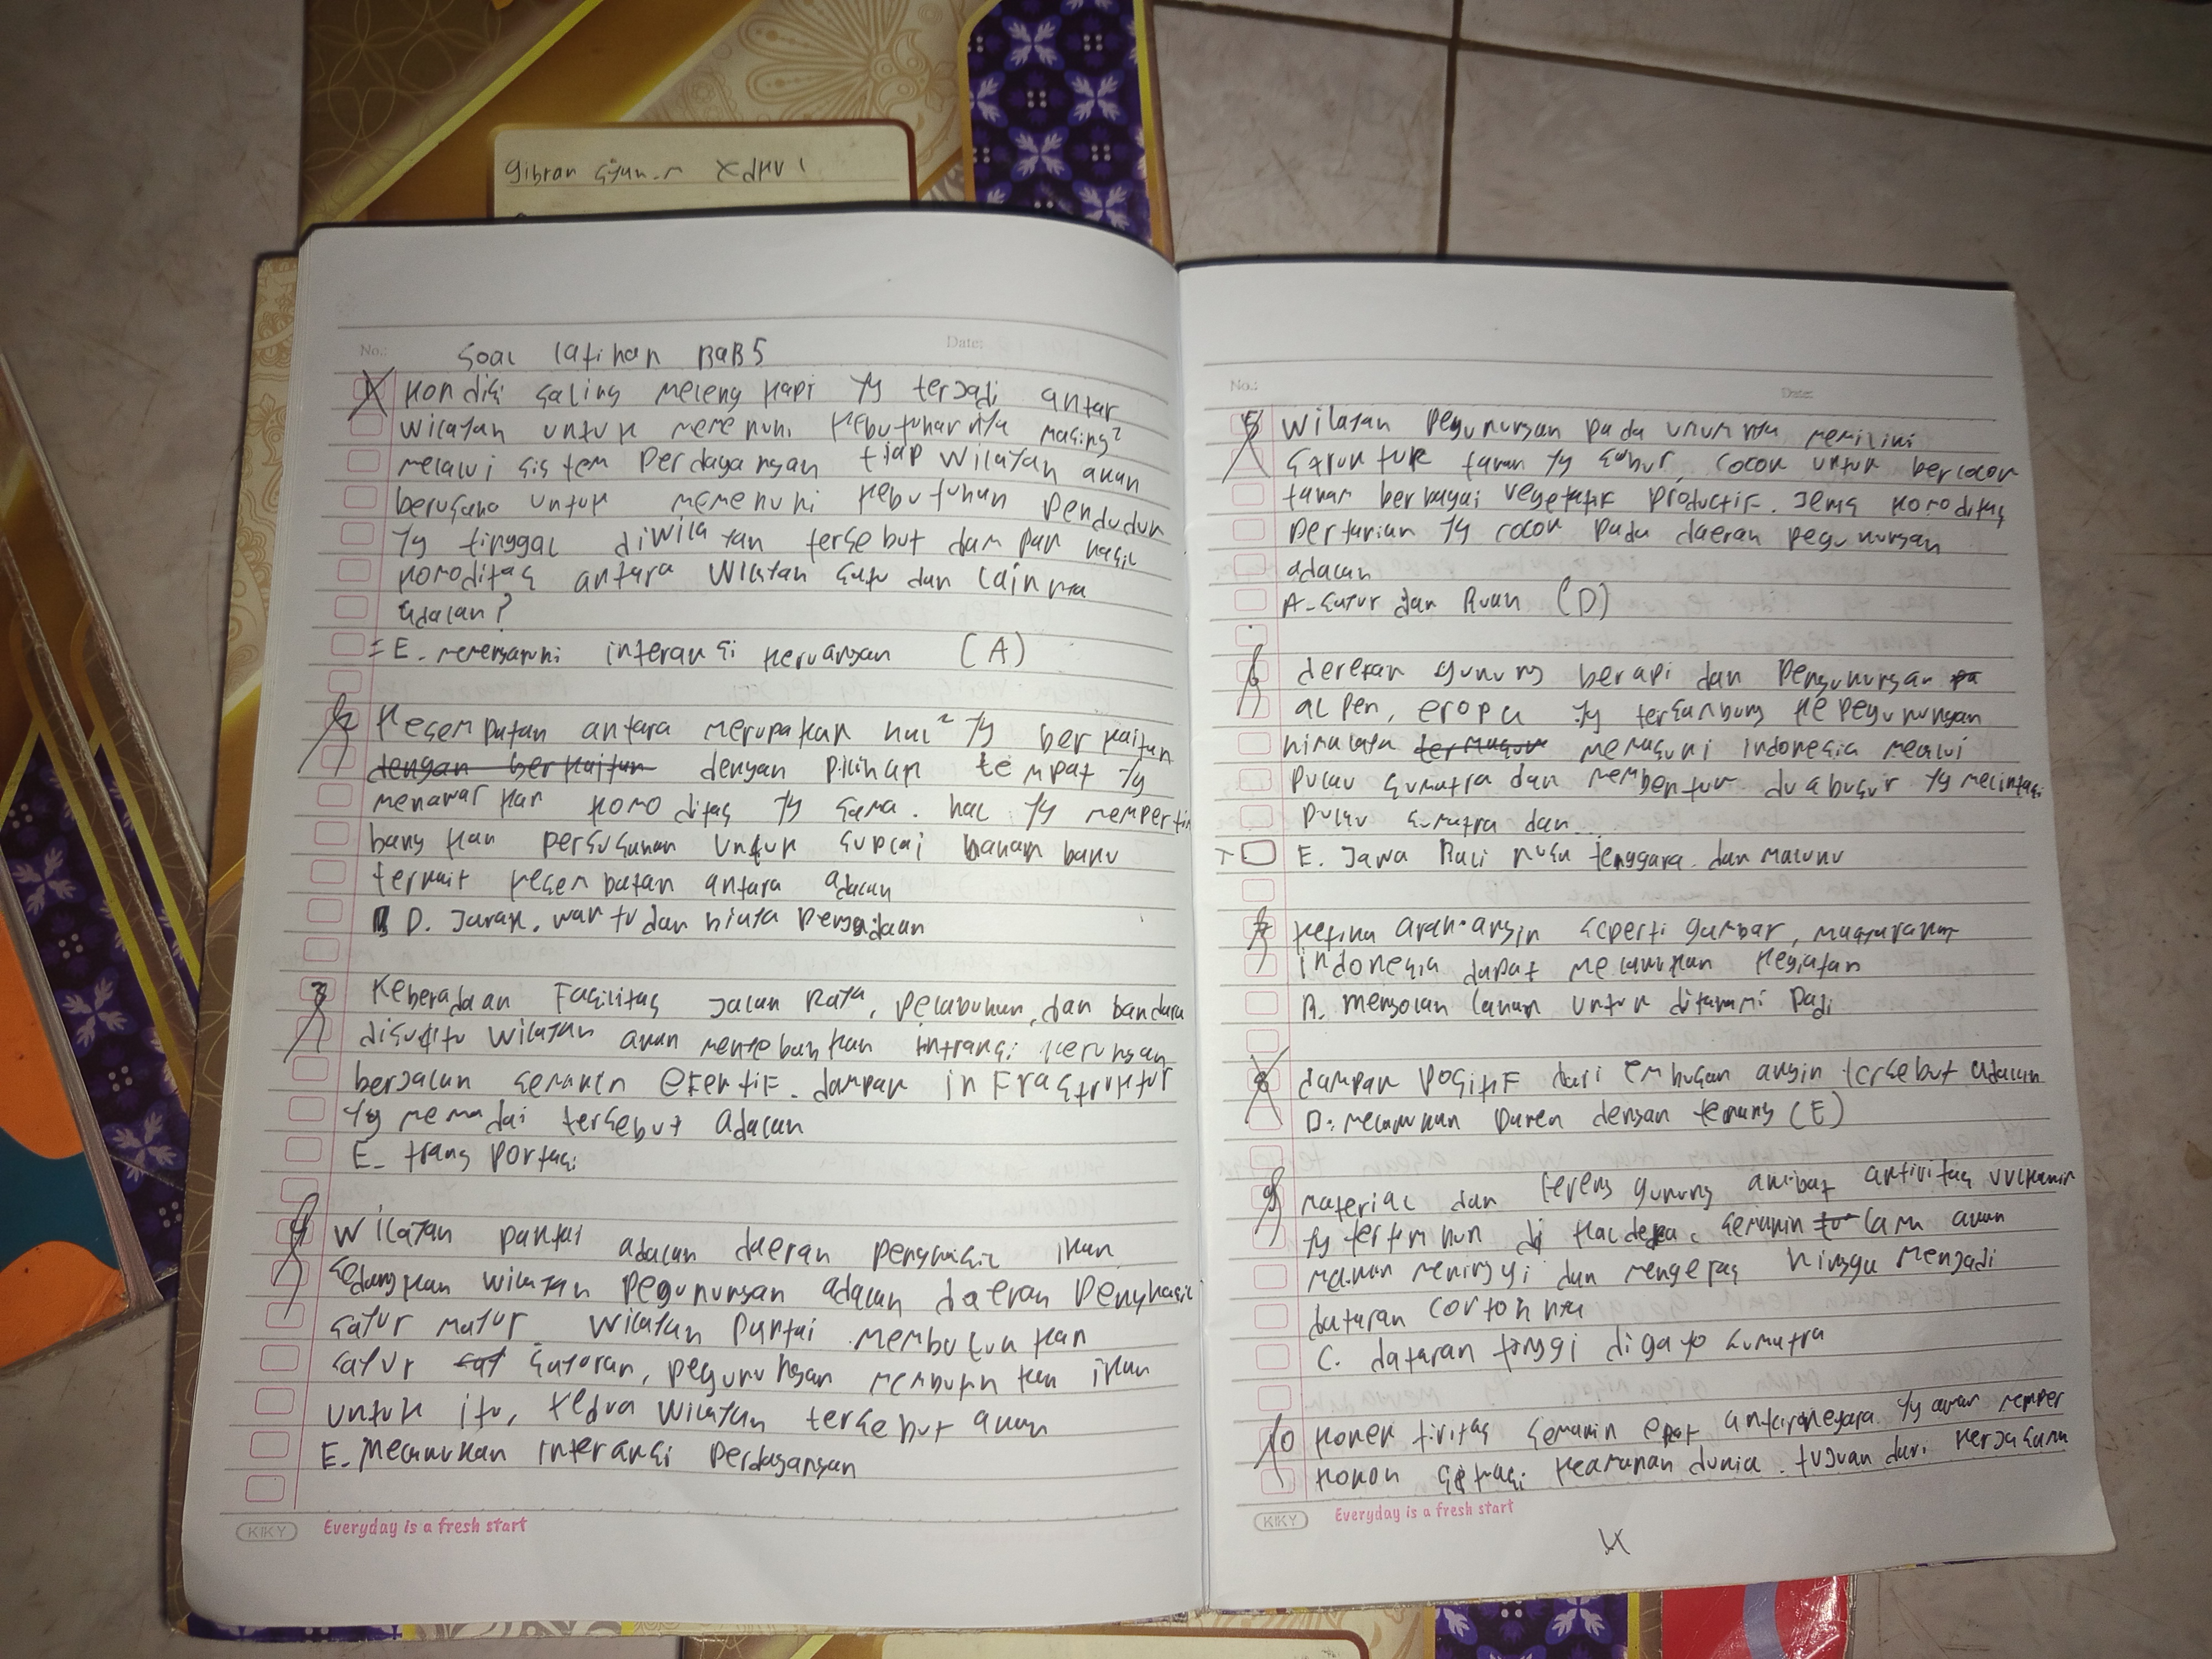 Gibran XdKV1
No.:
Date:
Soal latihan BAB 5
1 Kondisi saling melengkapi yg terjadi antar
wilayah untuk memenuhi kebutuhannya masing²
melalui sistem perdagangan tiap wilayah akan
berusaha untuk memenuhi kebutuhan penduduk
yg tinggal diwilayah tersebut dampak hasil
komoditas antara wilayah satu dan lainnya
adalah?
= E. memengaruhi interaksi keruangan (A)
2 Kesempatan antara merupakan hal² yg berkaitan
dengan berkaitan dengan pilihan tempat yg
menawarkan komoditas yg sama. hal yg memperti
bangkan perusahaan untuk suplai bahan baku
terkait kesempatan antara adalah
D. Jarak, waktu dan biaya pengadaan
3 Keberadaan Fasilitas Jalan Raya, pelabuhan, dan bandara
disuatu wilayah akan menyebabkan intraksi keruangan
berjalan semakin efektif. dampak infrastruktur
yg memadai tersebut adalah
E. transportasi
4 wilayah pantai adalah daerah penghasil ikan
sedangkan wilayah pegunungan adalah daerah penghasil
sayur mayur wilayah pantai membutuhkan
sayur say sayuran, pegunungan membutuhkan ikan
untuk itu, kedua wilayah tersebut akan
E. Melakukan interaksi perdagangan
KIKY Everyday is a fresh start
No.:
Date:
5 wilayah pegunungan pada umumnya memiliki
struktur tanah yg subur, cocok untuk bercocok
tanam berbagai vegetatif productif. Jenis komoditas
pertanian yg cocok pada daerah pegunungan
adalah
A. Sayur dan Buah (D)
6 deretan gunung berapi dan pengunungan pa
alpen, eropa yg tersambung ke pegunungan
himalaya termasuk memasuki indonesia melalui
pulau sumatra dan membentuk dua busur yg melintasi
pulau sumatra dan...
E. Jawa Bali nusa tenggara dan maluku
7 ketika arah angin seperti gambar, masyarakat
indonesia dapat melakukan kegiatan
A. mengolah lahan untuk ditanami padi
8 dampak positif dari embusan angin tersebut adalah
D. melakukan panen dengan tenang (E)
9 material dan lereng gunung akibat aktivitas vulkanik
yg tertimbun di kaldera. semakin lama akan
makin meninggi dan mengeras hingga menjadi
dataran contohnya
C. dataran tinggi di gayo sumatra
10 Konektivitas semakin erat antarnegara yg akan memper
kokoh keamanan dunia. tujuan dari kerjasama
KIKY Everyday is a fresh start